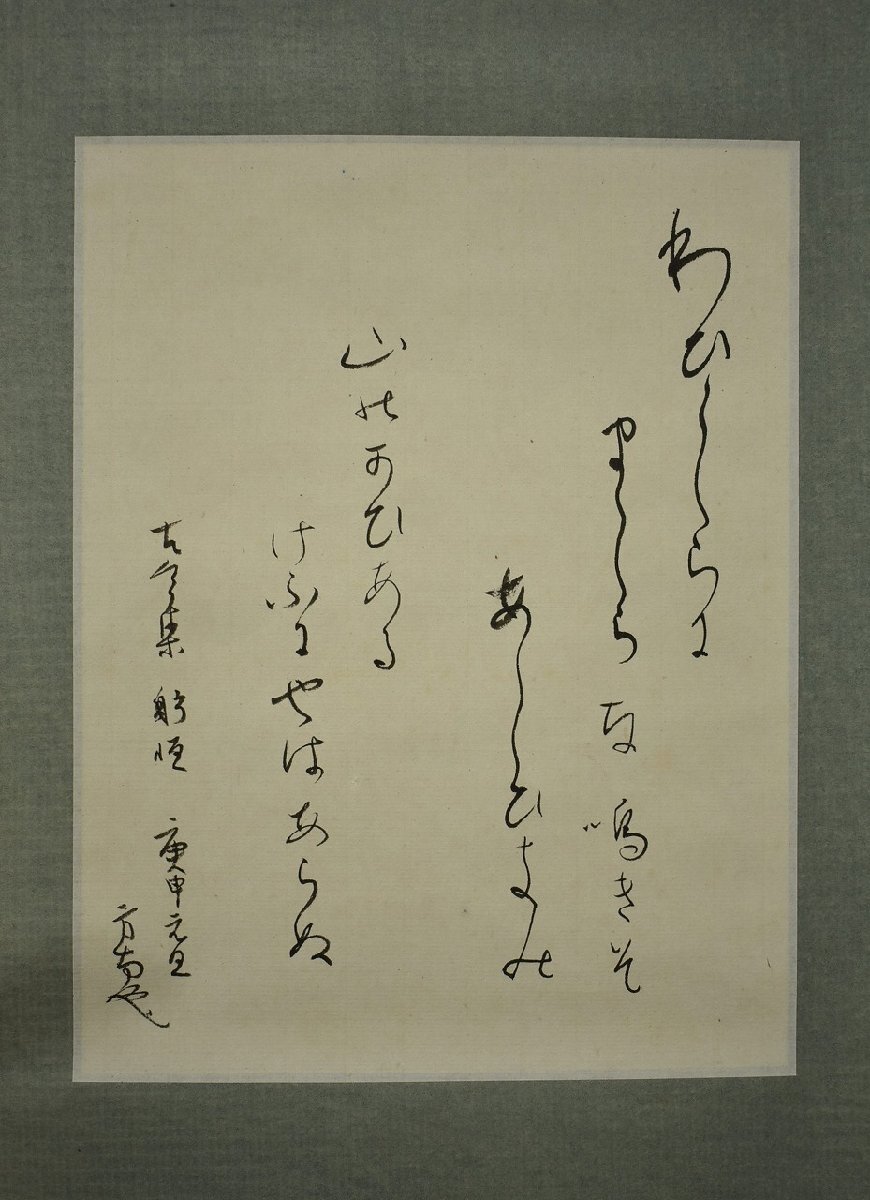 わひしらに
ましらな鳴きそ
あしひきの
山のかひある
けふにやはあらぬ
古今集 躬恒 庚申元旦